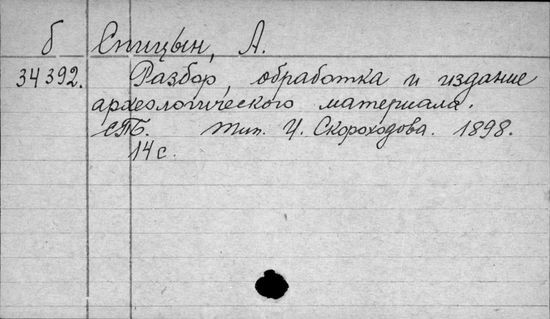 б Спицын, А.
34392. Разбор, обработка и издание
археологического материала.
СПБ. Тип. И. Скороходова. 1898.
14 с.